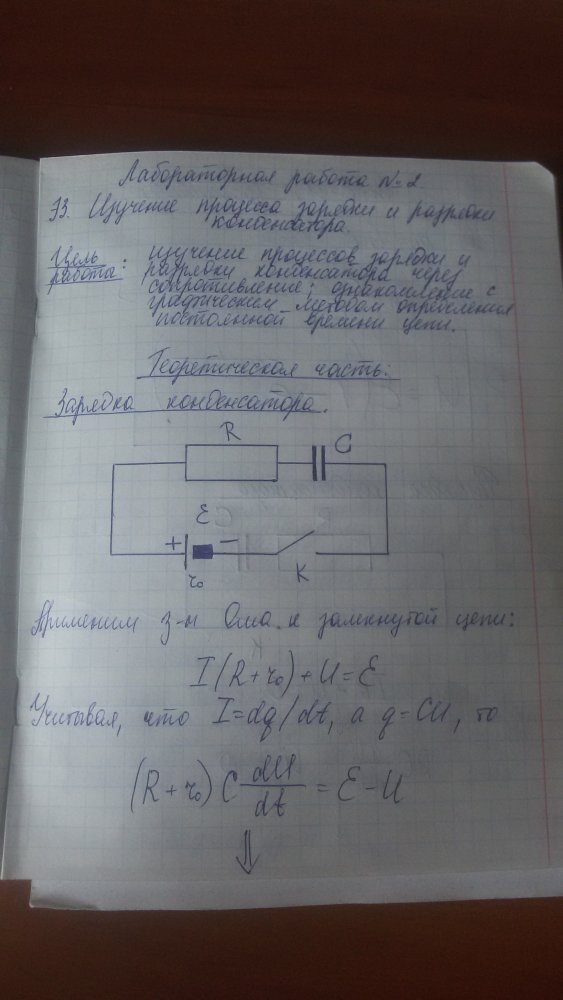 Лабораторная работа №2
Э3. Изучение процесса зарядки и разрядки
конденсатора.
Цель работы: изучение процессов зарядки и
разрядки конденсатора через
сопротивление; ознакомление с
графическим методом определения
постоянной времени цепи.
Теоретическая часть:
Зарядка конденсатора.
R
C
ε
+ −
r₀
K
Применим з-н Ома к замкнутой цепи:
I(R+r₀)+U=ε
Учитывая, что I=dq/dt, а q=CU, то
(R+r₀)C dU/dt = ε-U
⇓